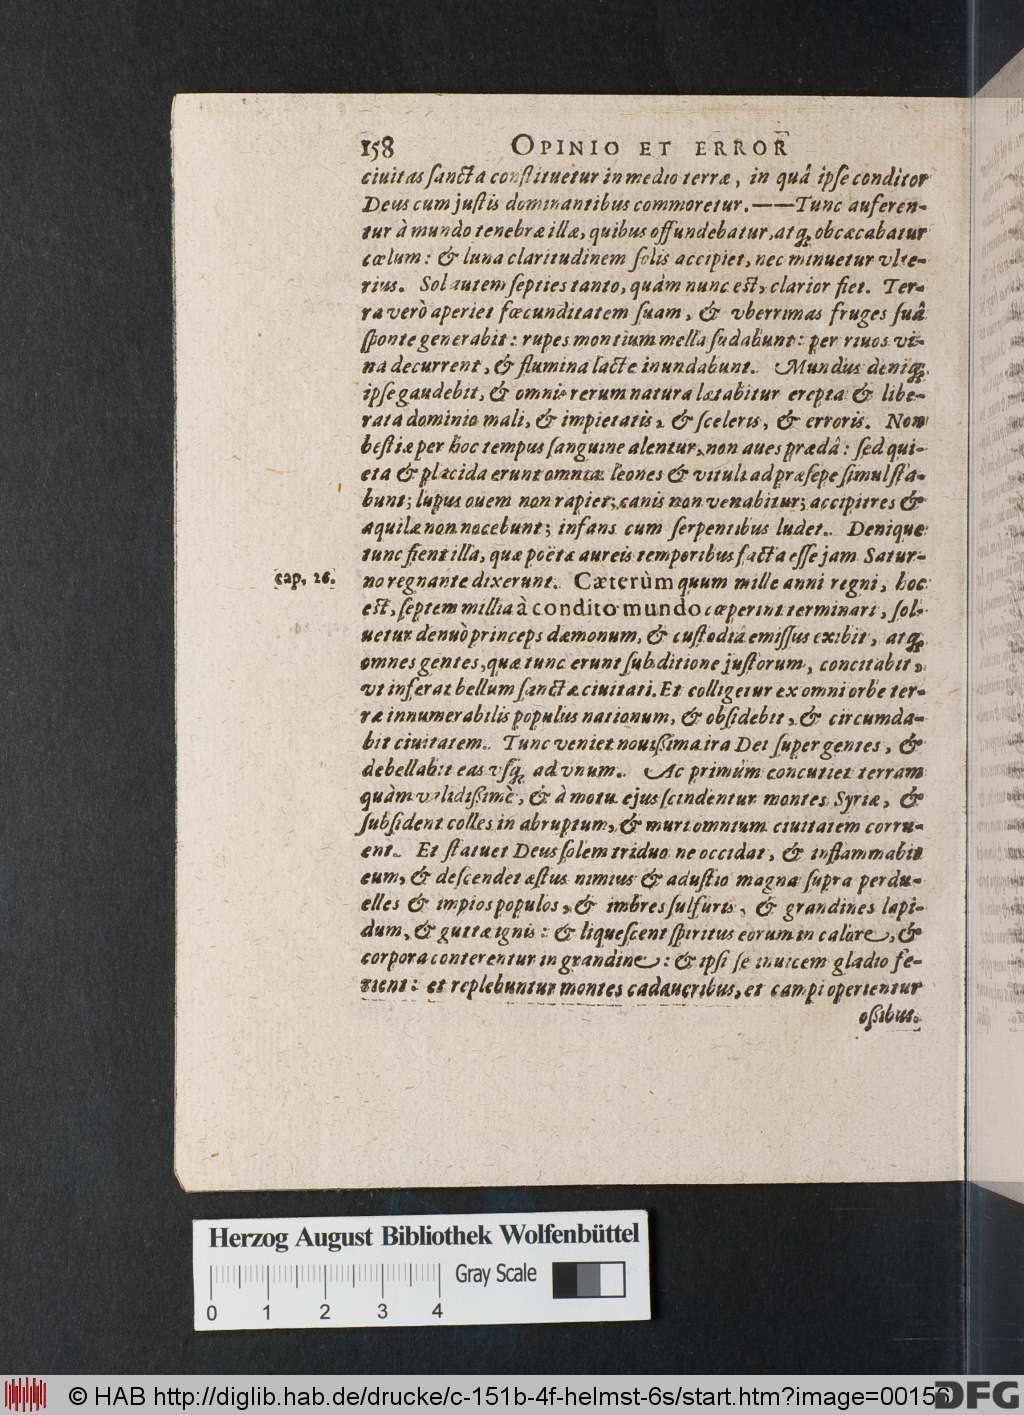 158 OPINIO ET ERROR
ciuitas sancta constituetur in medio terræ, in quâ ipse conditor
Deus cum justis dominantibus commoretur.——Tunc auferen-
tur à mundo tenebræ illæ, quibus offundebatur, atq; obcæcabatur
cœlum: & luna claritudinem solis accipiet, nec minuetur vlte-
rius. Sol autem septies tanto, quàm nunc est, clarior fiet. Ter-
ra verò aperiet fœcunditatem suam, & vberrimas fruges suâ
sponte generabit: rupes montium mella sudabunt: per riuos vi-
na decurrent, & flumina lacte inundabunt. Mundus deniq;
ipse gaudebit, & omnis rerum natura lætabitur erepta & libe-
rata dominio mali, & impietatis, & sceleris, & erroris. Non
bestiæ per hoc tempus sanguine alentur, non aues prædâ: sed qui-
eta & placida erunt omnia. leones & vituli ad præsepe simul sta-
bunt; lupus ouem non rapiet; canis non venabitur; accipitres &
aquilæ non nocebunt; infans cum serpentibus ludet. Denique
tunc fient illa, quæ poëtæ aureis temporibus facta esse jam Satur-
cap. 26. no regnante dixerunt. Cæterùm quum mille anni regni, hoc
est, septem millia à condito mundo cœperint terminari, sol-
uetur denuò princeps dæmonum, & custodiâ emissus exibit, atq;
omnes gentes, quæ tunc erunt sub ditione justorum, concitabit,
vt inferat bellum sanctæ ciuitati. Et colligetur ex omni orbe ter-
ræ innumerabilis populus nationum, & obsidebit, & circumda-
bit ciuitatem. Tunc veniet nouißima ira Dei super gentes, &
debellabit eas vsq; ad vnum. Ac primùm concutiet terram
quàm validißimè, & à motu ejus scindentur montes Syriæ, &
subsident colles in abruptum, & muri omnium ciuitatem corru-
ent. Et statuet Deus solem triduo ne occidat, & inflammabit
eum, & descendet æstus nimius & adustio magna supra perdu-
elles & impios populos, & imbres sulfuris, & grandines lapi-
dum, & guttæ ignis: & liquescent spiritus eorum in calore, &
corpora conterentur in grandine: & ipsi se inuicem gladio fe-
rient: et replebuntur montes cadaueribus, et campi operientur
oßibus.
Herzog August Bibliothek Wolfenbüttel
Gray Scale
0 1 2 3 4
© HAB http://diglib.hab.de/drucke/c-151b-4f-helmst-6s/start.htm?image=00156
DFG